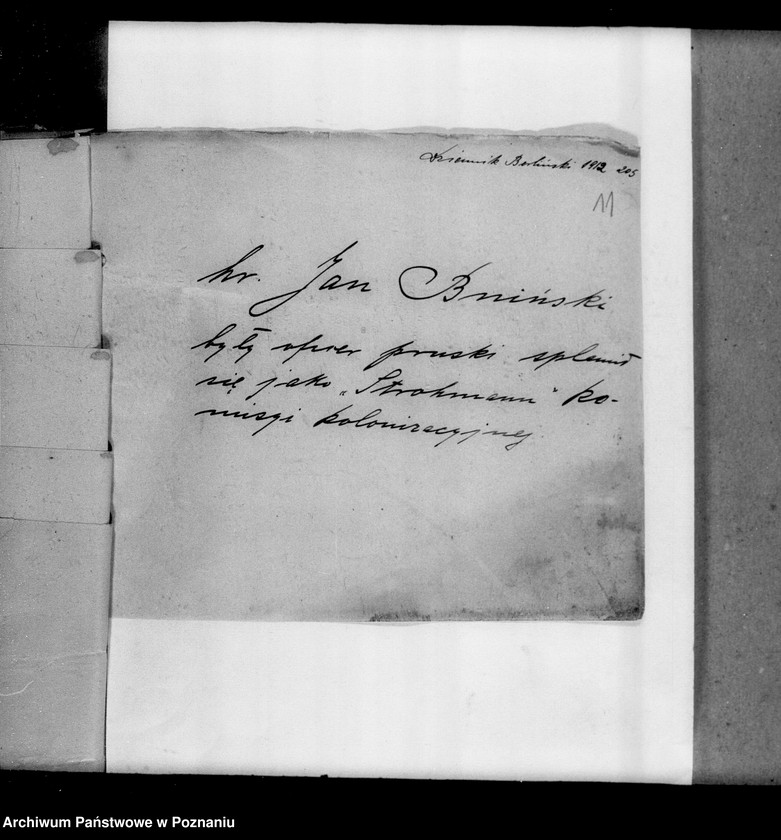 Dziennik Berliński 1912 205
11
hr. Jan Bniński
były oficer pruski splamił
się jako „Strohmann" ko-
misyi kolonizacyjnej
Archiwum Państwowe w Poznaniu